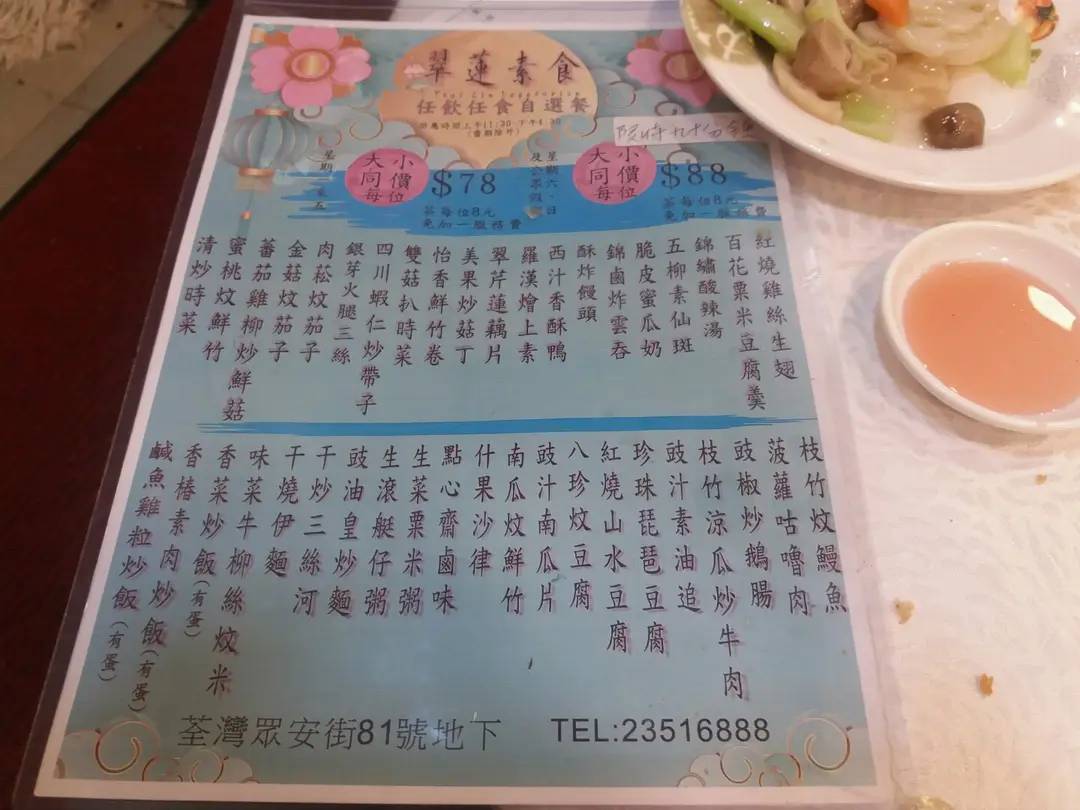 翠蓮素食
任飲任食自選餐
供應時間上午11:30-下午4:30
(當期除外)
限時九十分鐘
星期一至五
大小同價每位
$78
茶每位8元
免加一服務費
星期六、日及公眾假期
大小同價每位
$88
茶每位8元
免加一服務費
紅燒雞絲生翅
百花粟米豆腐羹
錦繡酸辣湯
五柳素仙斑
脆皮蜜瓜奶
錦鹵炸雲吞
酥炸饅頭
西汁香酥鴨
羅漢燴上素
翠芹蓮藕片
美果炒菇丁
怡香鮮竹卷
雙菇扒時菜
四川蝦仁炒帶子
銀芽火腿三絲
肉菘炆茄子
金菇炆茄子
蕃茄雞柳炒鮮菇
蜜桃炆鮮竹
清炒時菜
枝竹炆鰻魚
菠蘿咕嚕肉
豉椒炒鵝腸
枝竹涼瓜炒牛肉
豉汁素油追
珍珠琵琶豆腐
紅燒山水豆腐
八珍炆豆腐
豉汁南瓜片
南瓜炆鮮竹
什果沙律
點心齋鹵味
生菜粟米粥
生滾艇仔粥
豉油皇炒麵
干炒三絲河
干燒伊麵
味菜牛柳絲炆米
香菜炒飯(有蛋)
香椿素肉炒飯(有蛋)
鹹魚雞粒炒飯(有蛋)
荃灣眾安街81號地下 TEL:23516888